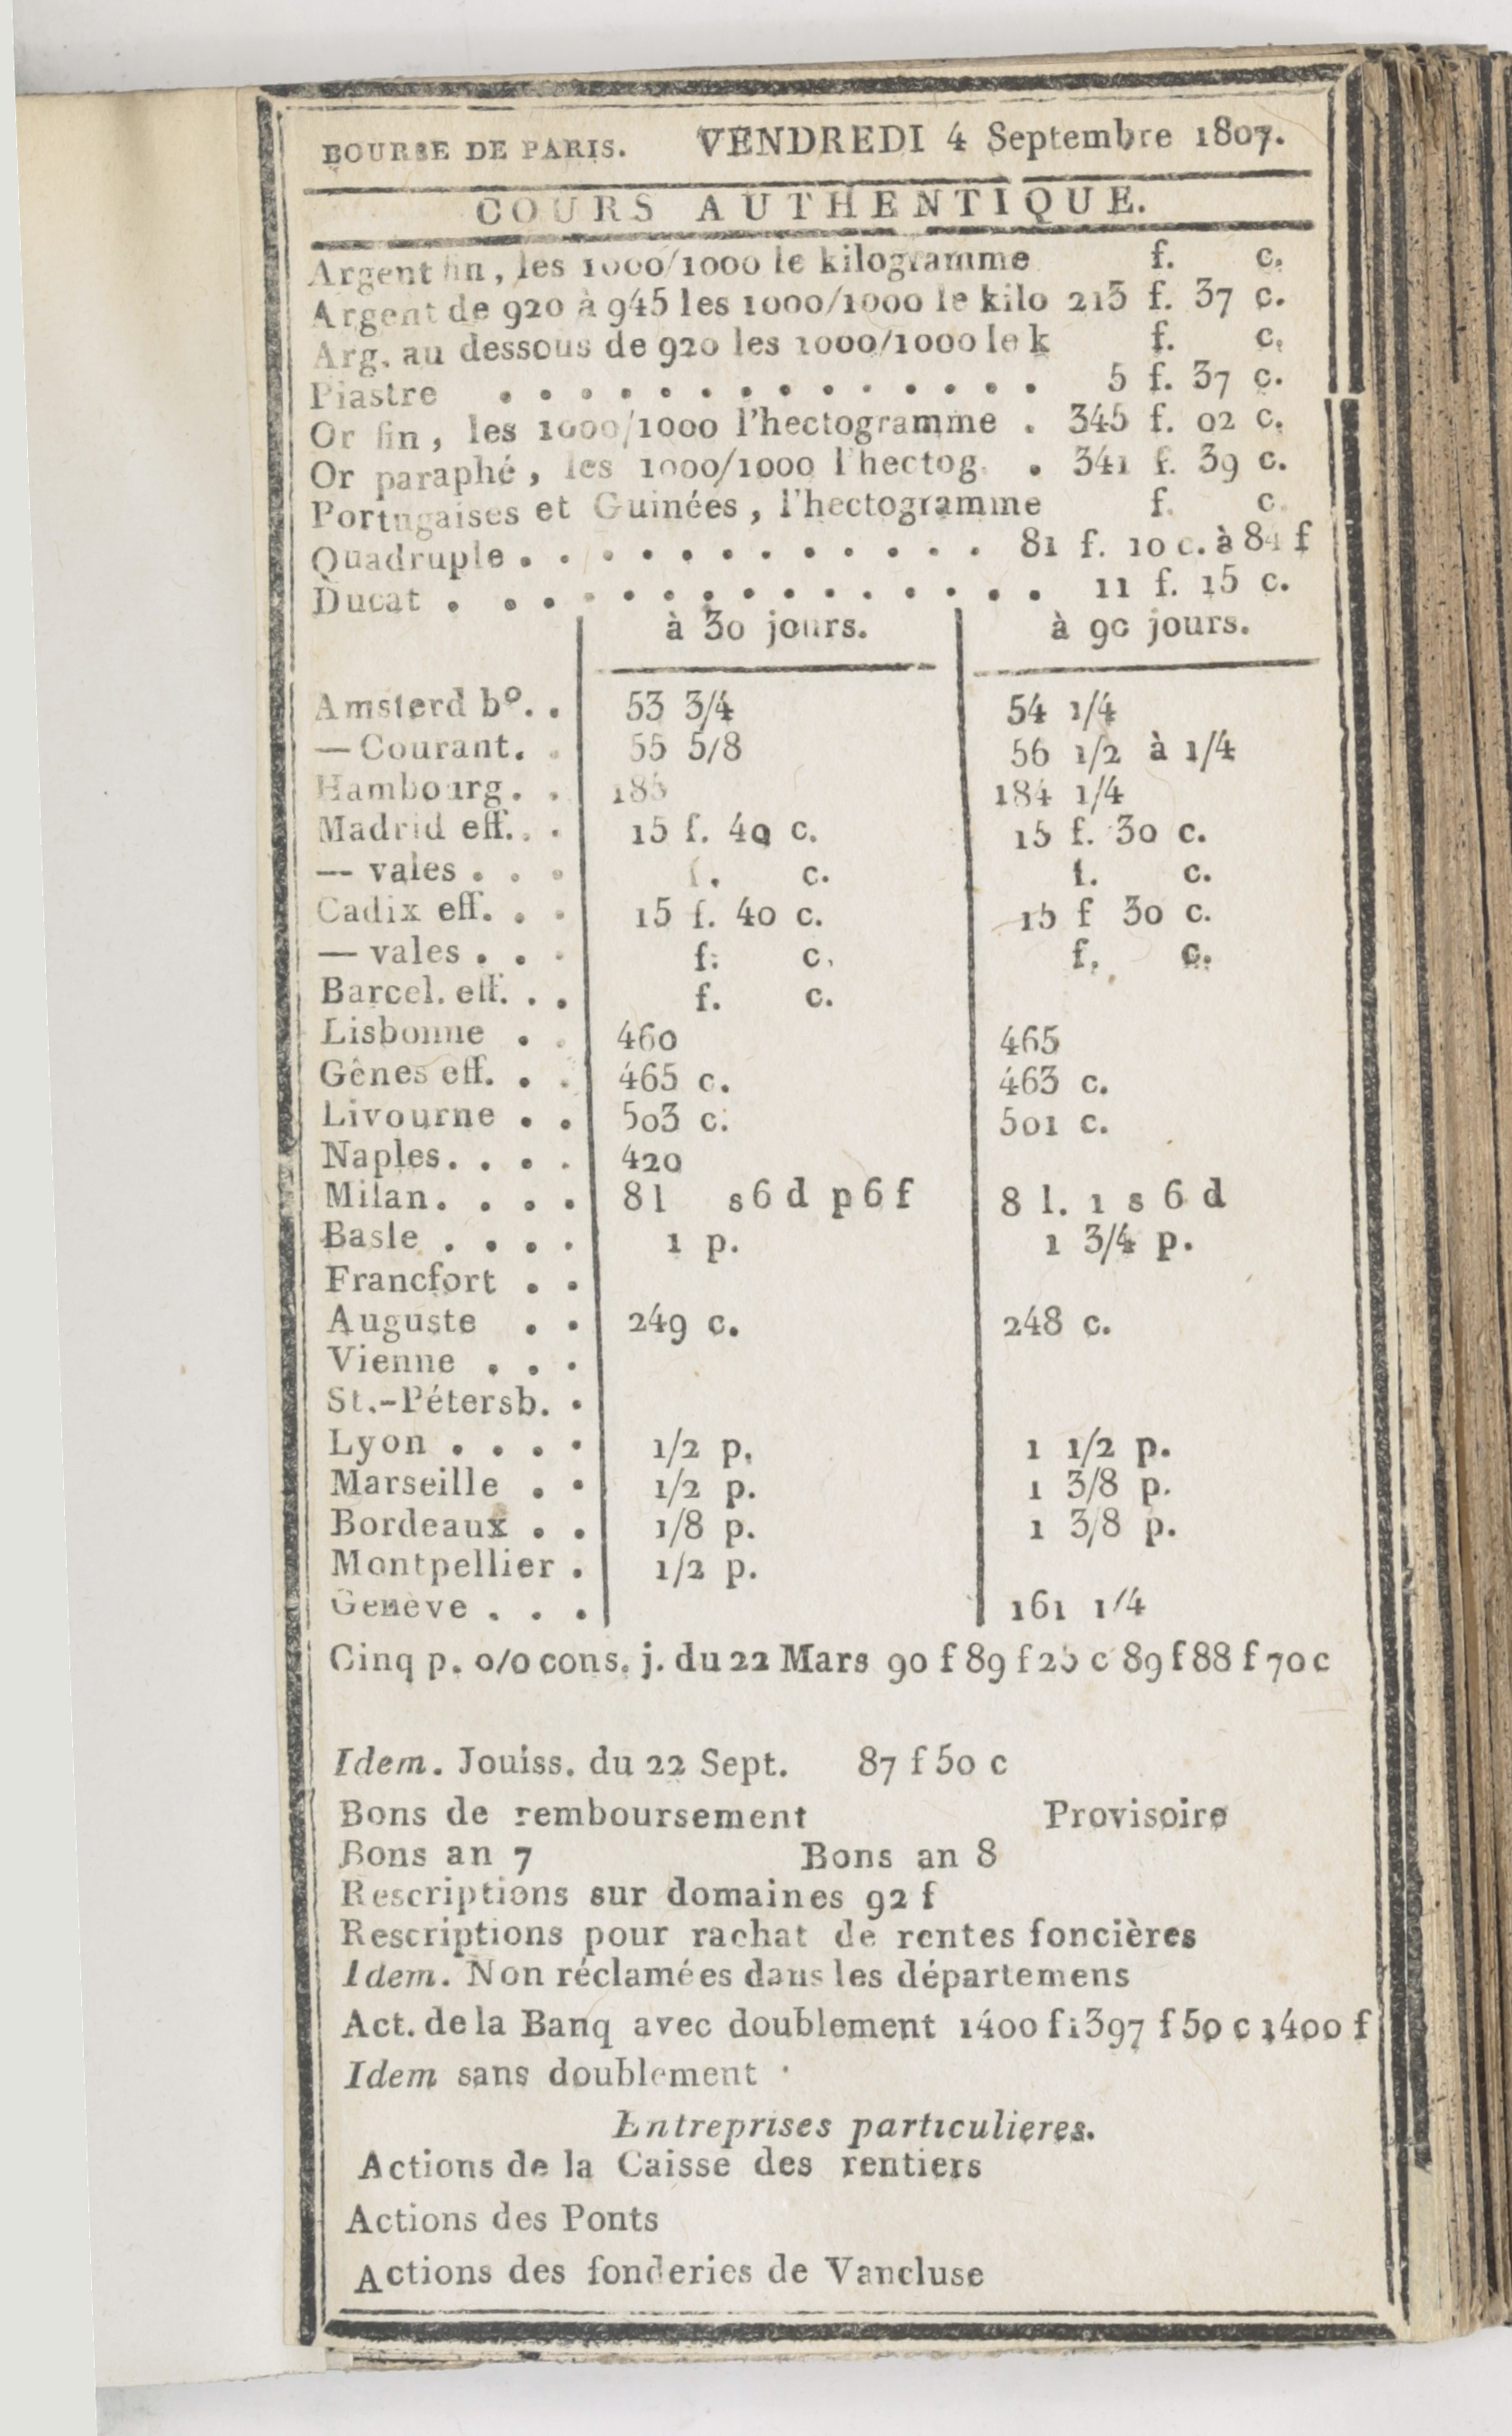 BOURSE DE PARIS. VENDREDI 4 Septembre 1807.
COURS AUTHENTIQUE.
Argent fin, les 1000/1000 le kilogramme f. c.
Argent de 920 à 945 les 1000/1000 le kilo 213 f. 37 c.
Arg. au dessous de 920 les 1000/1000 le k f. c.
Piastre . . . . . . . . . . . . . . 5 f. 37 c.
Or fin, les 1000/1000 l'hectogramme . 345 f. 02 c.
Or paraphé, les 1000/1000 l'hectog. . 341 f. 39 c.
Portugaises et Guinées, l'hectogramme f. c.
Quadruple . . . . . . . . . . . . 81 f. 10 c. à 84 f
Ducat . . . . . . . . . . . . . . 11 f. 15 c.
à 30 jours. à 90 jours.
Amsterd bº. . 53 3/4 54 1/4
— Courant. . 55 5/8 56 1/2 à 1/4
Hambourg. . 185 184 1/4
Madrid eff. . . 15 f. 40 c. 15 f. 30 c.
— vales . . . f. c. f. c.
Cadix eff. . . 15 f. 40 c. 15 f 30 c.
— vales . . . f. c. f. c.
Barcel. eff. . . f. c.
Lisbonne . . 460 465
Gênes eff. . . 465 c. 463 c.
Livourne . . 503 c. 501 c.
Naples. . . . 420
Milan. . . . 8 l s 6 d p 6 f 8 l. 1 s 6 d
Basle . . . . 1 p. 1 3/4 p.
Francfort . .
Auguste . . 249 c. 248 c.
Vienne . . .
St.-Pétersb. .
Lyon . . . . 1/2 p. 1 1/2 p.
Marseille . . 1/2 p. 1 3/8 p.
Bordeaux . . 1/8 p. 1 3/8 p.
Montpellier . 1/2 p.
Genève . . . 161 1/4
Cinq p. o/o cons. j. du 22 Mars 90 f 89 f 25 c 89 f 88 f 70 c
Idem. Jouiss. du 22 Sept. 87 f 50 c
Bons de remboursement Provisoire
Bons an 7 Bons an 8
Rescriptions sur domaines 92 f
Rescriptions pour rachat de rentes foncières
Idem. Non réclamées dans les départemens
Act. de la Banq avec doublement 1400 f 1397 f 50 c 1400 f
Idem sans doublement
Entreprises particulieres.
Actions de la Caisse des rentiers
Actions des Ponts
Actions des fonderies de Vancluse